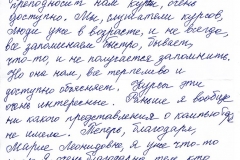 преподносит нам курс, очень
доступно. Мы, слушатели курсов,
люди уже в возрасте, и не всегда,
все запоминаем быстро, бывает,
что-то, и не получается запомнить.
Но она нам, все терпеливо и
доступно объясняет. Курсы эти
очень интересные. Раньше я вообще
ни какого представления о компьютере
не имела. Теперь, благодаря,
Марие Леонидовне, я уже что-то